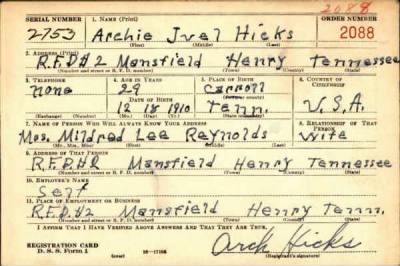 2088
SERIAL NUMBER 1. NAME (Print) ORDER NUMBER
2753 Archie Jvel Hicks 2088
(First) (Middle) (Last)
2. ADDRESS (Print)
R.F.D#2 Mansfield Henry Tennessee
(Number and street or R. F. D. number) (Town) (County) (State)
3. TELEPHONE 4. AGE IN YEARS 5. PLACE OF BIRTH 6. COUNTRY OF CITIZENSHIP
none 29 Carroll
DATE OF BIRTH (Town or county)
12 18 1910 Tenn. U.S.A.
(Exchange) (Number) (Mo.) (Day) (Yr.) (State or country)
7. NAME OF PERSON WHO WILL ALWAYS KNOW YOUR ADDRESS 8. RELATIONSHIP OF THAT PERSON
Mrs. Mildred Lee Reynolds Wife
(Mr., Mrs., Miss) (First) (Middle) (Last)
9. ADDRESS OF THAT PERSON
R.F.D#2 Mansfield Henry Tennessee
(Number and street or R. F. D. number) (Town) (County) (State)
10. EMPLOYER'S NAME
Self
11. PLACE OF EMPLOYMENT OR BUSINESS
R.F.D.#2 Mansfield Henry Tenn.
(Number and street or R. F. D. number) (Town) (County) (State)
I AFFIRM THAT I HAVE VERIFIED ABOVE ANSWERS AND THAT THEY ARE TRUE.
REGISTRATION CARD
D. S. S. Form 1 (over) Arch Hicks
(Registrant's signature)